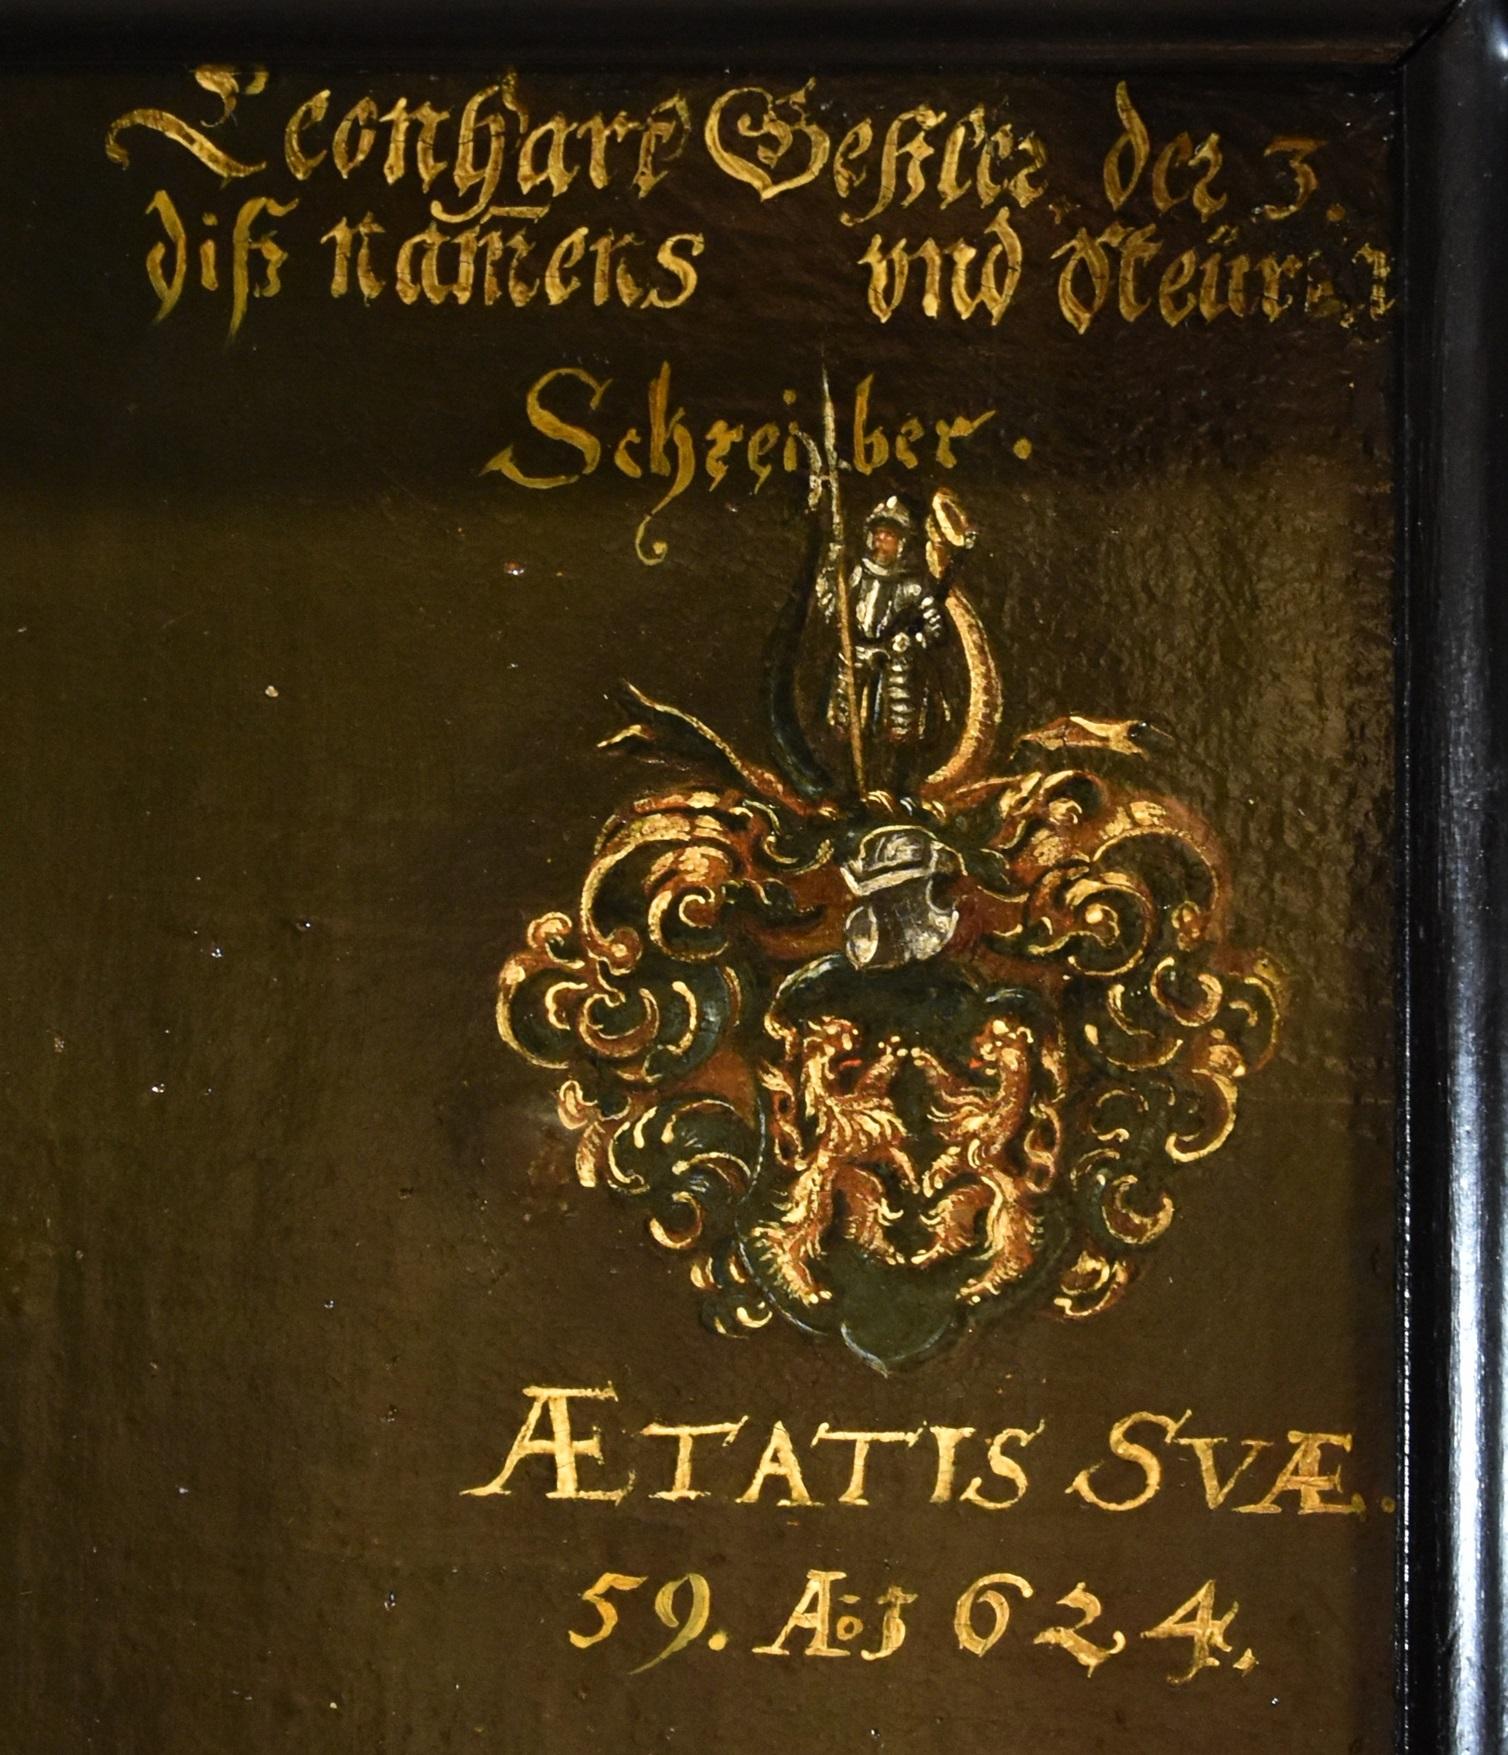 Leonhart Geßler, der 3.
diß nam̄ens vnd Steürer
Schreiber.
ÆTATIS SVÆ.
59. Aö 1624.